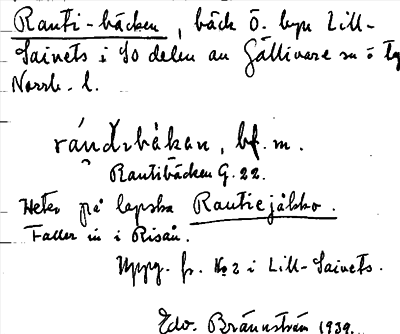 Rauti-bäcken, bäck Ö. byn Lill-
Saivets i SO delen av Gällivare sn ö
Norrb. l.
rá́ndʒbäkan, bf. m.
Rautibäcken G. 22.
Heter på lapska Rautiejåkko.
Faller in i Risån.
Uppg. fr. No 2 i Lill-Saivets.
Edv. Brännström 1939.